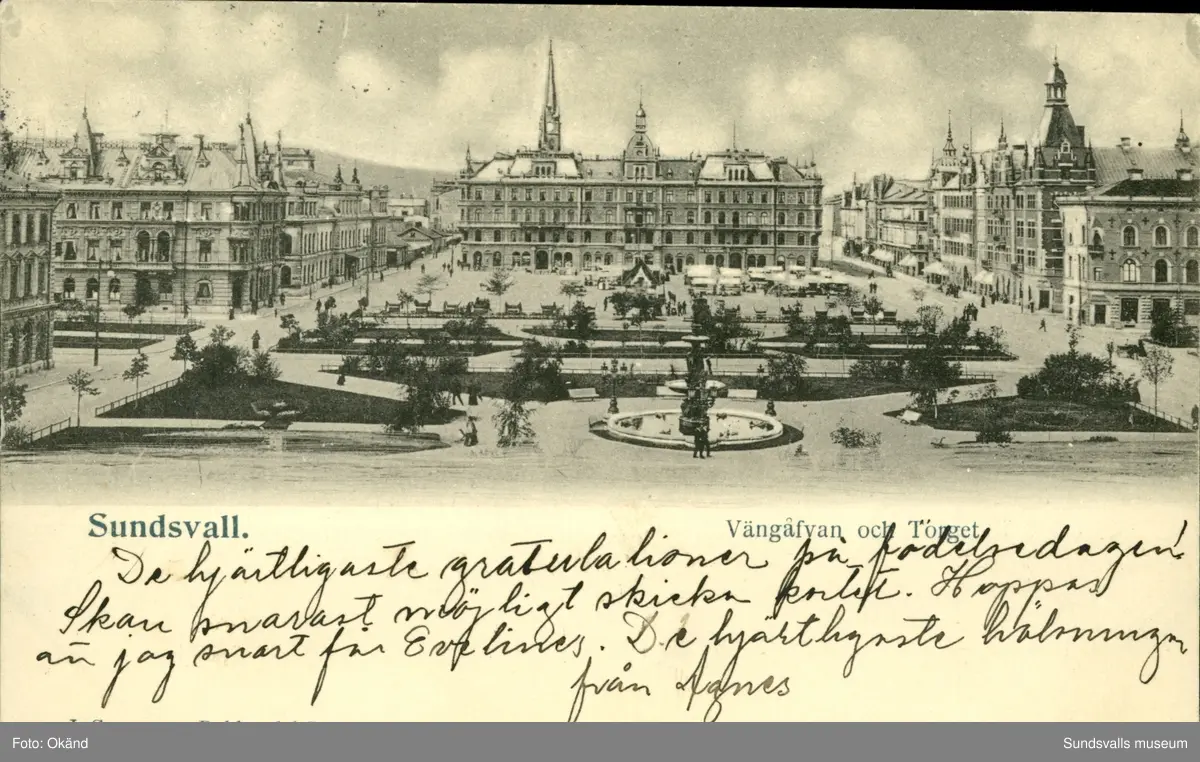 Sundsvall.
Vängåfvan och Torget
De hjärtligaste gratulationer på födelsedagen!
Skall snarast möjligt skicka kortet. Hoppas
att jag snart får Evelines. De hjärtligaste hälsningar
från Agnes
Foto: Okänd
Sundsvalls museum